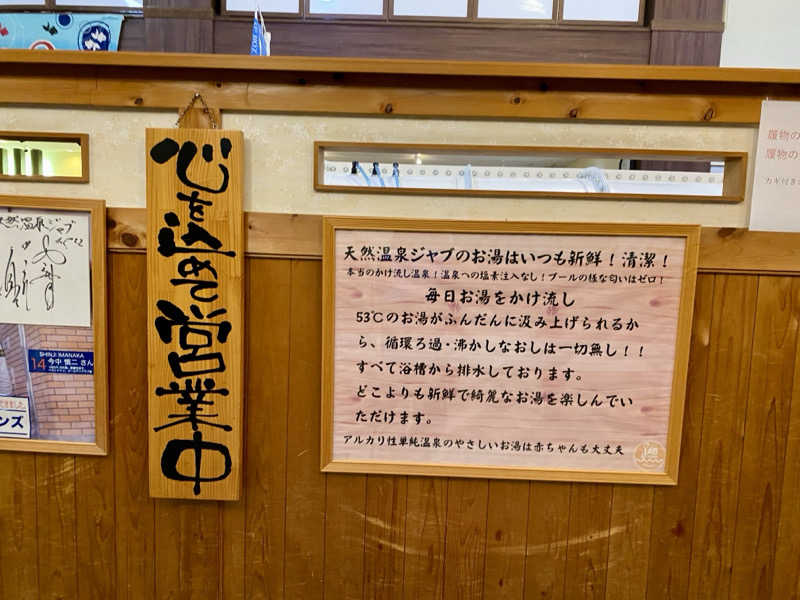 心を込めて営業中
天然温泉ジャブのお湯はいつも新鮮!清潔!
本当のかけ流し温泉!温泉への塩素注入なし!プールの様な匂いはゼロ!
毎日お湯をかけ流し
53℃のお湯がふんだんに汲み上げられるか
ら、循環ろ過・沸かしなおしは一切無し!!
すべて浴槽から排水しております。
どこよりも新鮮で綺麗なお湯を楽しんでい
ただけます。
アルカリ性単純温泉のやさしいお湯は赤ちゃんも大丈夫
天然温泉ジャブ
SHINJI IMANAKA
14 今中 慎二 さん
ンズ
履物の
履物の
カギ付き